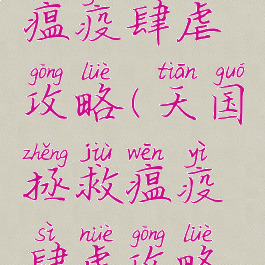 瘟疫肆虐
gōng lüè tiān guó
攻略(天国
zhěng jiù wēn yì
拯救瘟疫
sì nüè gōng lüè
肆虐攻略